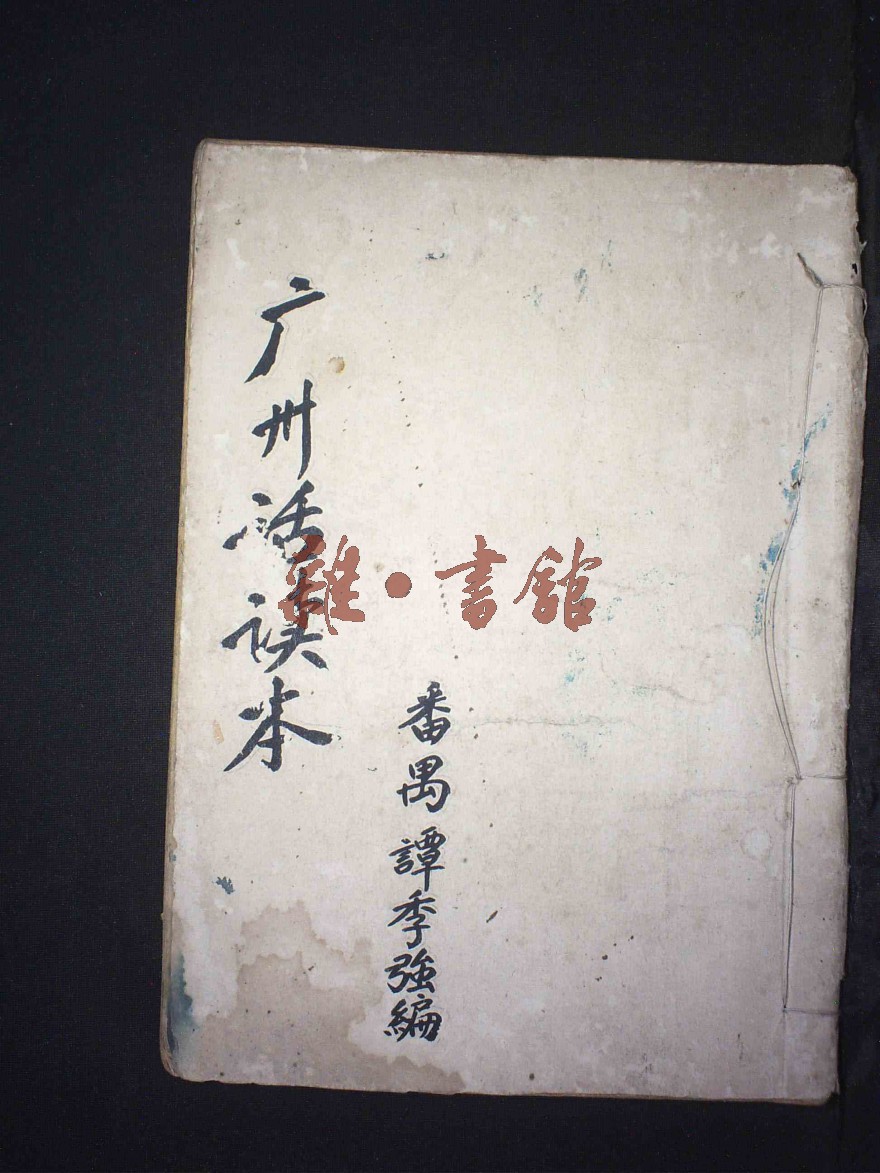 广州话读本
番禺譚季強編
雜·書館